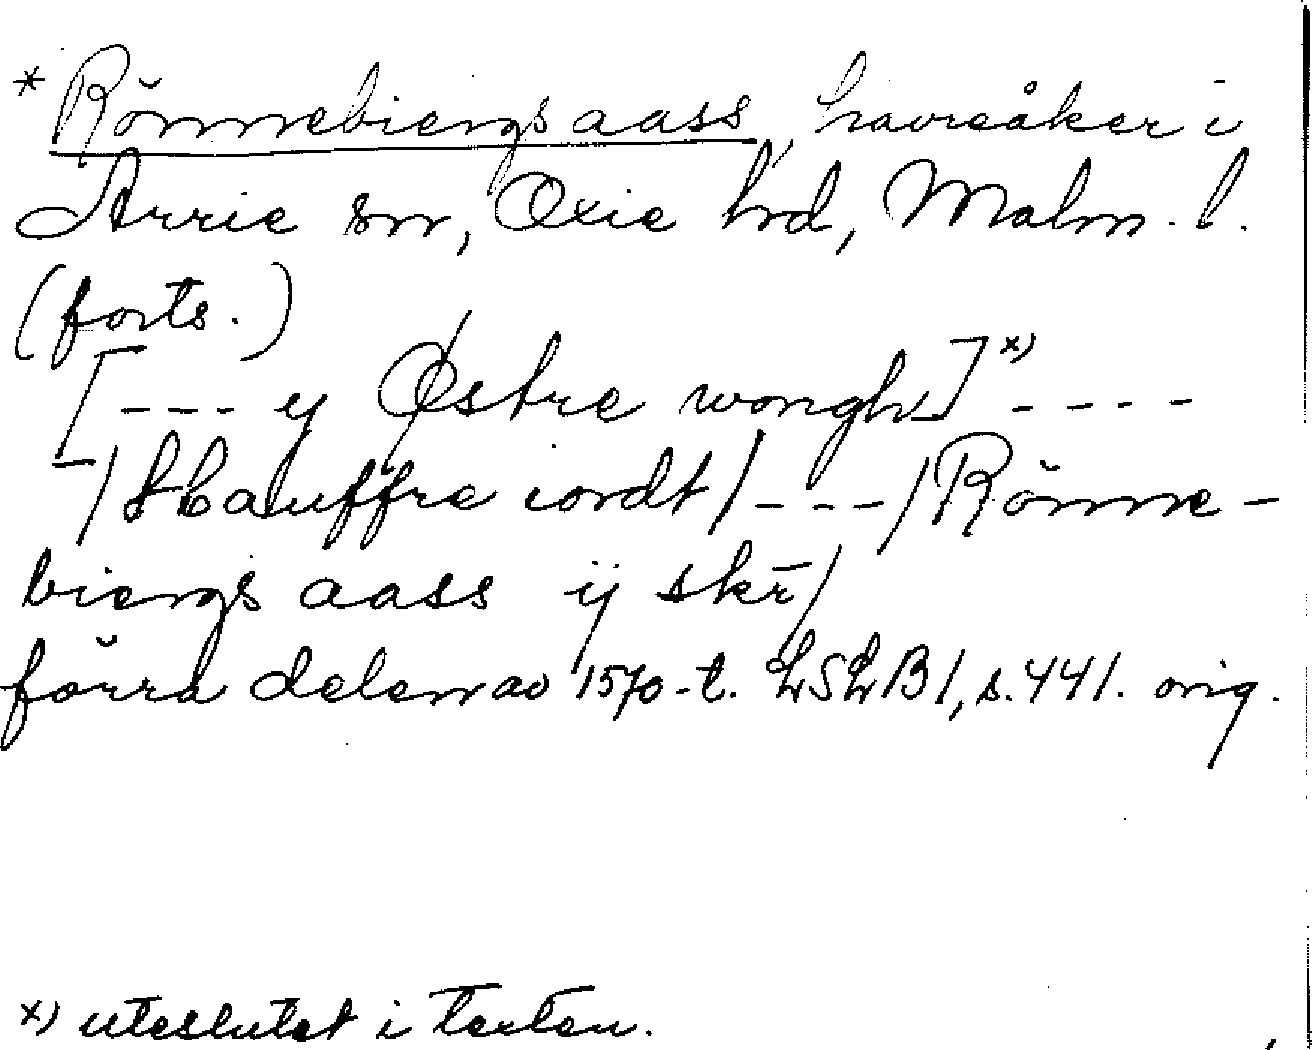 * Rönnebiergs aass, havreåker i
Arrie sn, Oxie hd, Malm. l.
(forts.)
[--- y Østre wongh]ˣ⁾ ----
/Hauffre iordt/ --- /Rönne-
biergs aass ij skr̄/
förra delen av 1570-t. LSLB1, s. 441. orig.
x) uteslutet i texten.